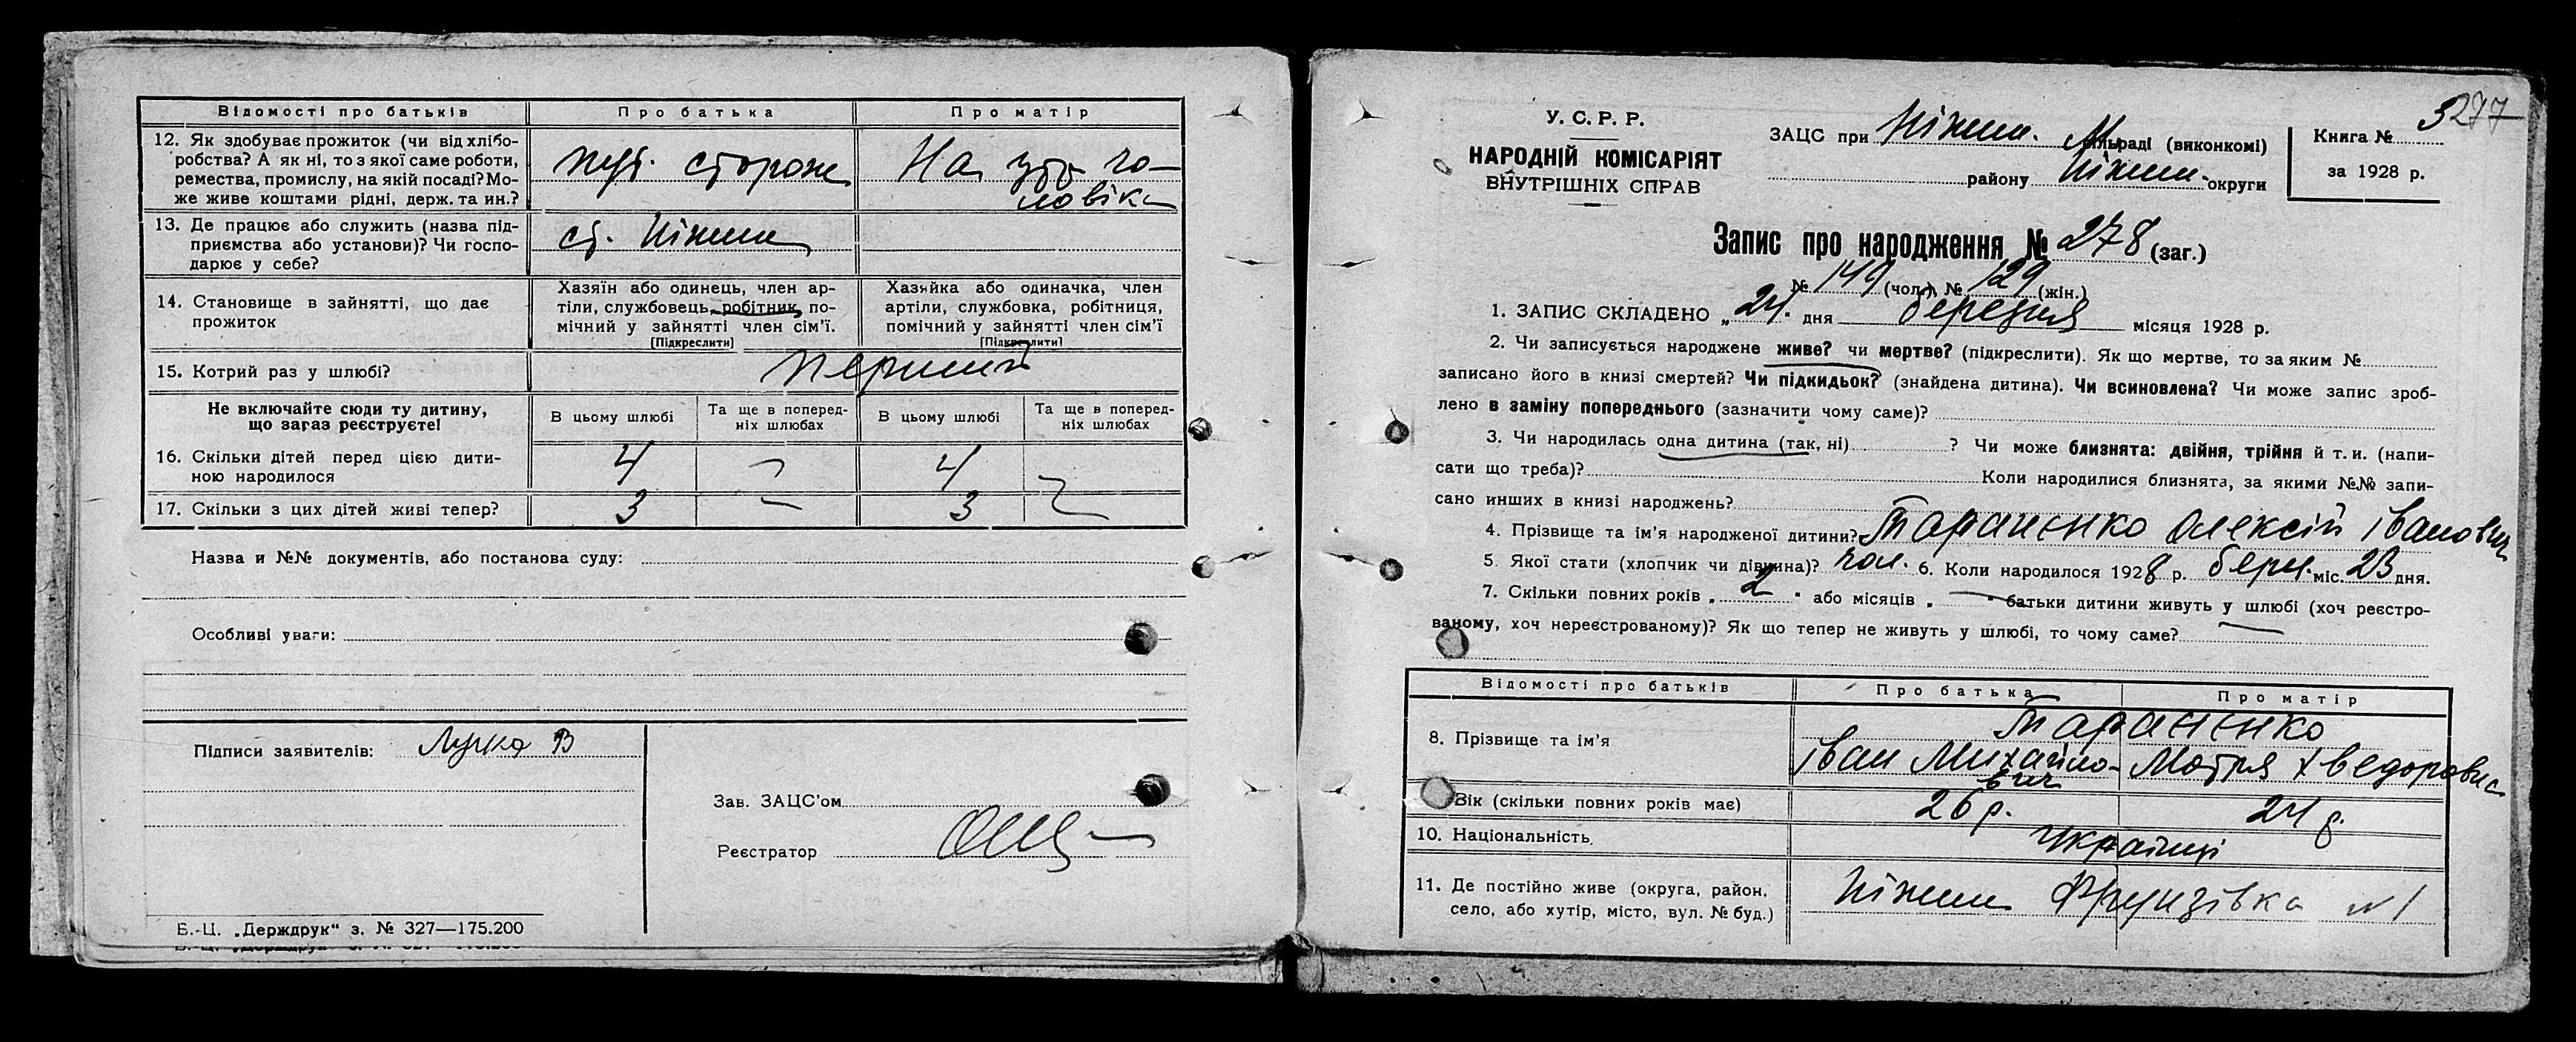 Відомості про батьків Про батька Про матір
12. Як здобуває прожиток (чи від хлібо-
робства? А як ні, то з якої саме роботи,
ремества, промислу, на якій посаді? Мо-
же живе коштами рідні, держ. та ин.?
сторож
На чо-
ловіка
13. Де працює або служить (назва під-
приємства або установи)? Чи госпо-
дарює у себе?
ст. Ніжин
14. Становище в зайнятті, що дає
прожиток
Хазяїн або одинець, член ар-
тілі, службовець, робітник, по-
мічний у зайнятті член сім'ї.
[Підкреслити]
Хазяйка або одиначка, член
артілі, службовка, робітниця,
помічний у зайнятті член сім'ї
[Підкреслити]
15. Котрий раз у шлюбі? перший
Не включайте сюди ту дитину,
що зараз реєструєте!
В цьому шлюбі
Та ще в поперед-
ніх шлюбах
В цьому шлюбі
Та ще в поперед-
ніх шлюбах
16. Скільки дітей перед цією дити-
ною народилося
4 — 4
17. Скільки з цих дітей живі тепер? 3 — 3
Назва и №№ документів, або постанова суду:
Особливі уваги:
Підписи заявителів:
Зав. ЗАЦС'ом
Реєстратор
Б.-Ц. „Держдрук" з. № 327—175.200
277
У. С. Р. Р.
НАРОДНІЙ КОМІСАРІЯТ
ВНУТРІШНІХ СПРАВ
ЗАЦС при Ніжин. М сільраді (виконкомі)
району Ніжин. округи
Книга № 3
за 1928 р.
Запис про народження № 278 (заг.)
№ 149 (чол.), № 129 (жін.)
1. ЗАПИС СКЛАДЕНО „24" дня березня місяця 1928 р.
2. Чи записується народжене живе? чи мертве? (підкреслити). Як що мертве, то за яким №
записано його в книзі смертей? Чи підкидьок? (знайдена дитина). Чи всиновлена? Чи може запис зроб-
лено в заміну попереднього (зазначити чому саме)?
3. Чи народилась одна дитина (так, ні) ? Чи може близнята: двійня, трійня й т. и. (напи-
сати що треба)? Коли народилися близнята, за якими №№ запи-
сано инших в книзі народжень?
4. Прізвище та ім'я народженої дитини? Тараненко Олексій Іванович
5. Якої стати (хлопчик чи дівчина)? чол. 6. Коли народилося 1928 р. берн. міс. 23 дня.
7. Скільки повних років „ 2 " або місяців „ — " батьки дитини живуть у шлюбі (хоч реєстро-
ваному, хоч нереєстрованому)? Як що тепер не живуть у шлюбі, то чому саме?
Відомості про батьків Про батька Про матір
8. Прізвище та ім'я
Тараненко
Іван Михайло-
вич
Мотря Хведоровна
Вік (скільки повних років має) 26 р. 24 р.
10. Національність Українці
11. Де постійно живе (округа, район,
село, або хутір, місто, вул. № буд.)
Ніжин Фрунзівка № 1